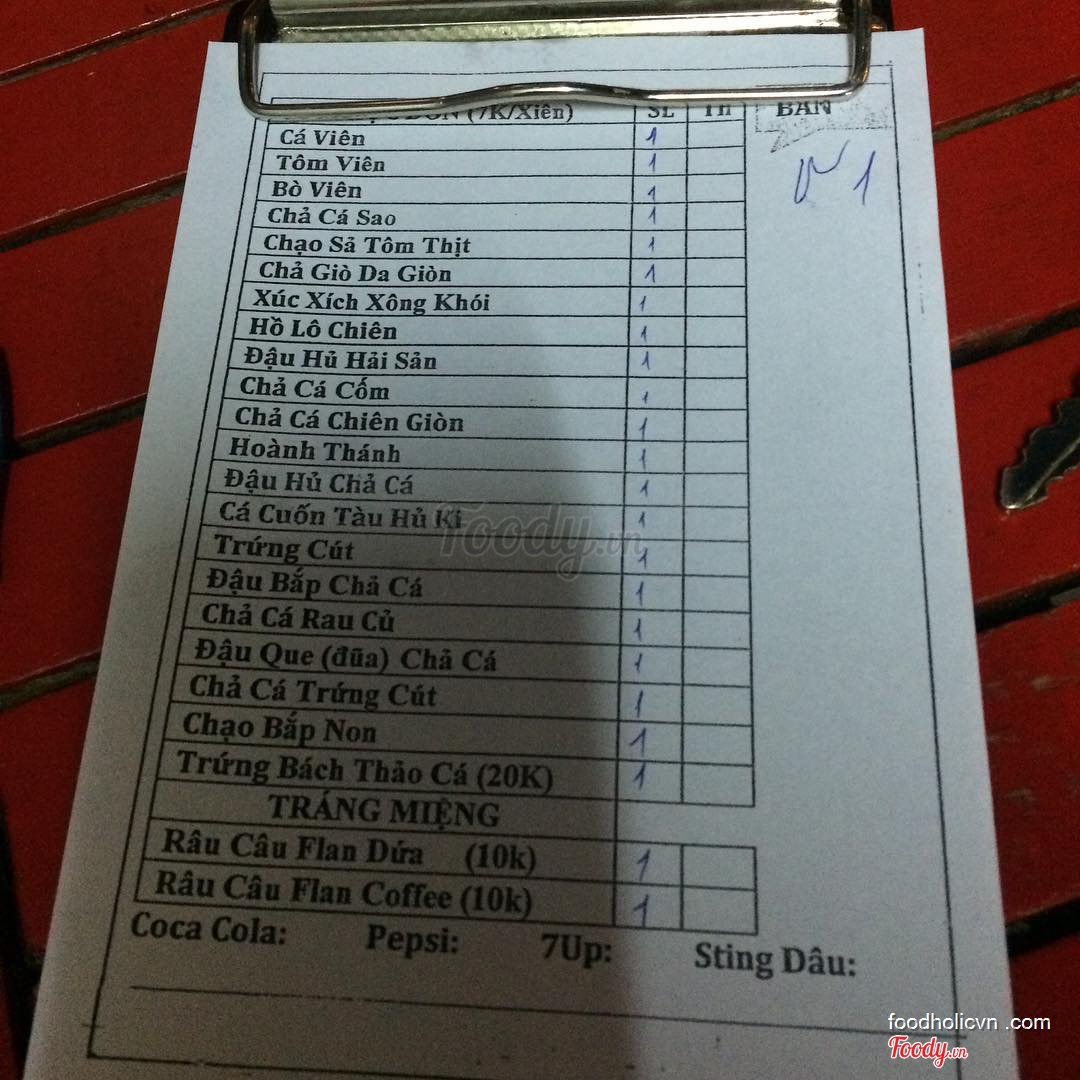 (7K/Xiên) SL Th BÀN
Cá Viên 1
v 1
Tôm Viên 1
Bò Viên 1
Chả Cá Sao 1
Chạo Sả Tôm Thịt 1
Chả Giò Da Giòn 1
Xúc Xích Xông Khói 1
Hồ Lô Chiên 1
Đậu Hủ Hải Sản 1
Chả Cá Cốm 1
Chả Cá Chiên Giòn 1
Hoành Thánh 1
Đậu Hủ Chả Cá 1
Cá Cuốn Tàu Hủ Ki 1
Foody.vn
Trứng Cút 1
Đậu Bắp Chả Cá 1
Chả Cá Rau Củ 1
Đậu Que (đũa) Chả Cá 1
Chả Cá Trứng Cút 1
Chạo Bắp Non 1
Trứng Bách Thảo Cá (20K) 1
TRÁNG MIỆNG
Râu Câu Flan Dứa (10k) 1
Râu Câu Flan Coffee (10k) 1
Coca Cola: Pepsi: 7Up: Sting Dâu:
foodholicvn .com
Foody.vn